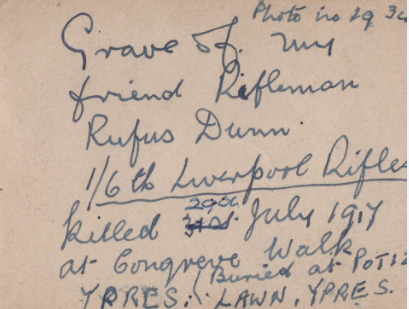 Photo no 29 34
Grave of my
friend Rifleman
Rufus Dunn.
1/6th Liverpool Rifles
29th
killed July 1917
at Congreve Walk
YPRES. (Buried at POTIZ
LAWN, YPRES.